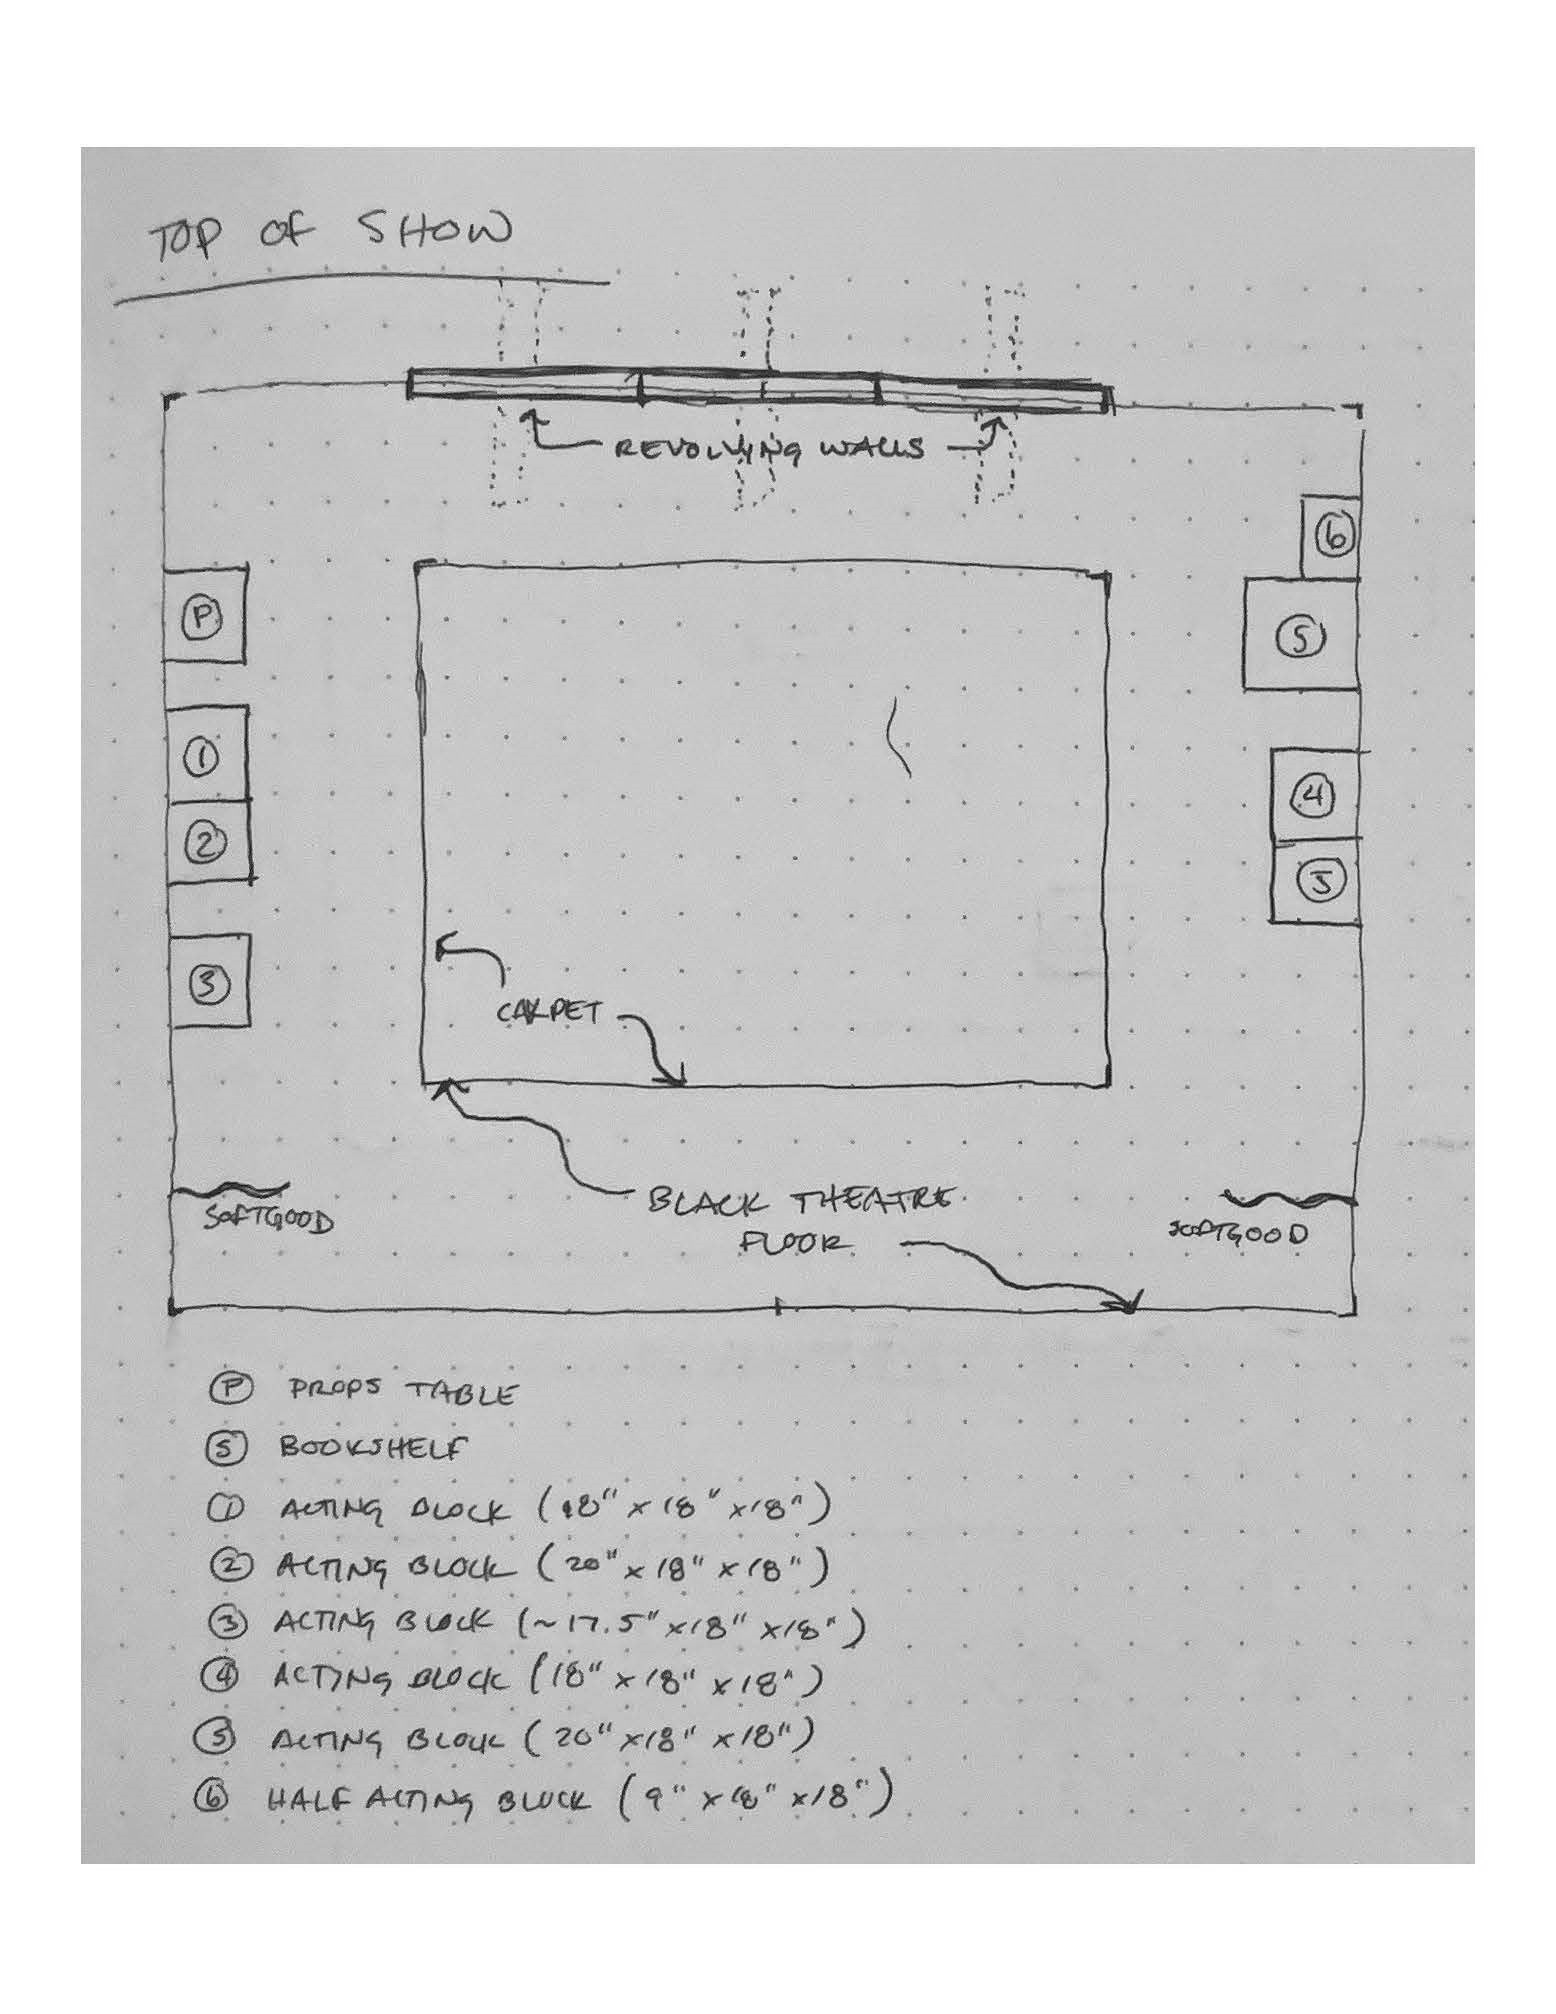 TOP OF SHOW
REVOLVING WALLS
6
P
S
1
4
2
5
3
CARPET
BLACK THEATRE
FLOOR
SOFTGOOD
SOFTGOOD
P PROPS TABLE
S BOOKSHELF
1 ACTING BLOCK (18" x 18" x 18")
2 ACTING BLOCK (20" x 18" x 18")
3 ACTING BLOCK (~17.5" x 18" x 18")
4 ACTING BLOCK (18" x 18" x 18")
5 ACTING BLOCK (20" x 18" x 18")
6 HALF ACTING BLOCK (9" x 18" x 18")